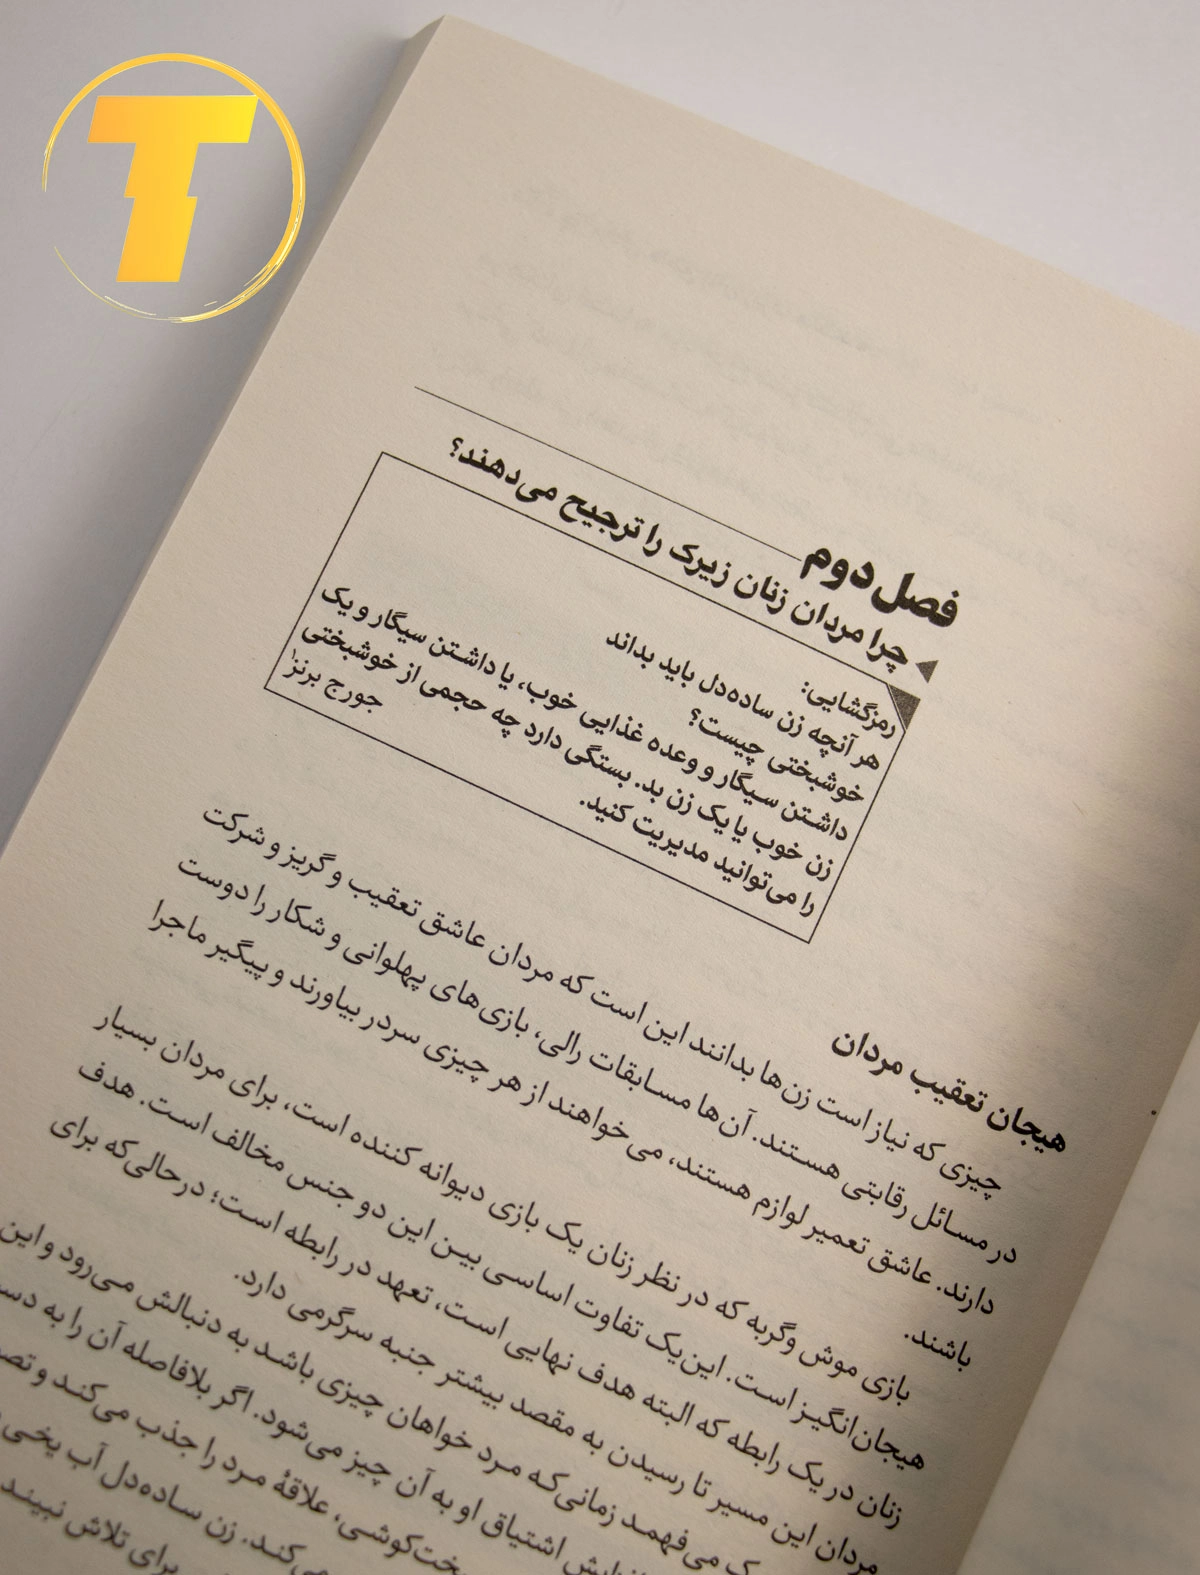 T
فصل دوم
چرا مردان زنان زیرک را ترجیح می‌دهند؟
رمزگشایی:
هر آنچه زن ساده‌دل باید بداند
خوشبختی چیست؟
داشتن سیگار و وعده غذایی خوب، یا داشتن سیگار و یک
زن خوب یا یک زن بد. بستگی دارد چه حجمی از خوشبختی
را می‌توانید مدیریت کنید.
جورج برنز۱
هیجان تعقیب مردان
چیزی که نیاز است زن‌ها بدانند این است که مردان عاشق تعقیب و گریز و شرکت
در مسائل رقابتی هستند. آن‌ها مسابقات رالی، بازی‌های پهلوانی و شکار را دوست
دارند. عاشق تعمیر لوازم هستند، می‌خواهند از هر چیزی سردر بیاورند و پیگیر ماجرا
باشند.
بازی موش وگربه که در نظر زنان یک بازی دیوانه کننده است، برای مردان بسیار
هیجان‌انگیز است. این‌یک تفاوت اساسی بین این دو جنس مخالف است. هدف
زنان در یک رابطه که البته هدف نهایی است، تعهد در رابطه است؛ درحالی‌که برای
مردان این مسیر تا رسیدن به مقصد بیشتر جنبه سرگرمی دارد.
می‌فهمد زمانی‌که مرد خواهان چیزی باشد به دنبالش می‌رود و این
اشتیاق او به آن چیز می‌شود. اگر بلافاصله آن را به
علاقهٔ مرد را جذب می‌کند و
می‌کند. زن ساده‌دل آب یخی
برای تلاش نبیند